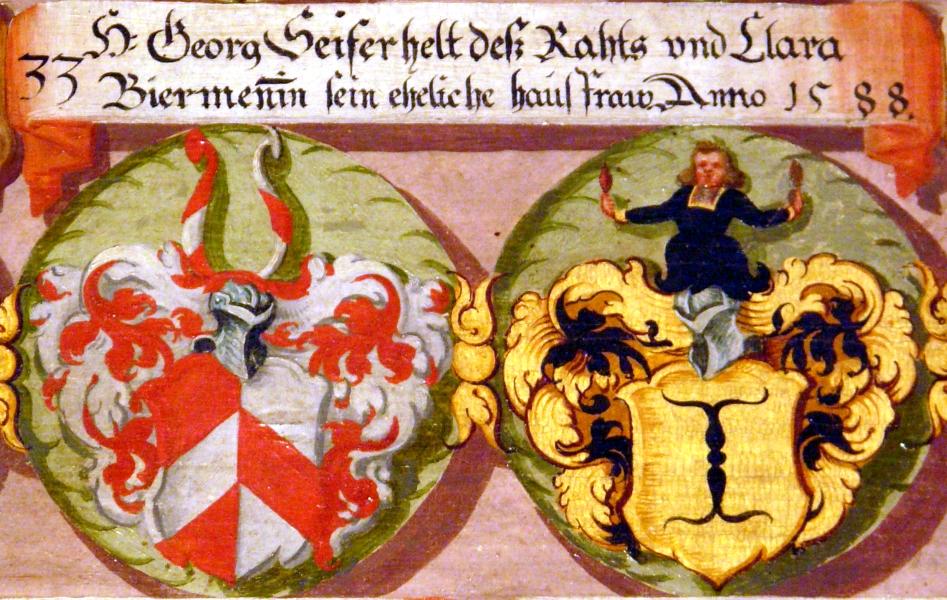 33 H: Georg Seiferhelt deß Rahts vnd Clara
Biermenin sein eheliche hausfraw Anno 1588.